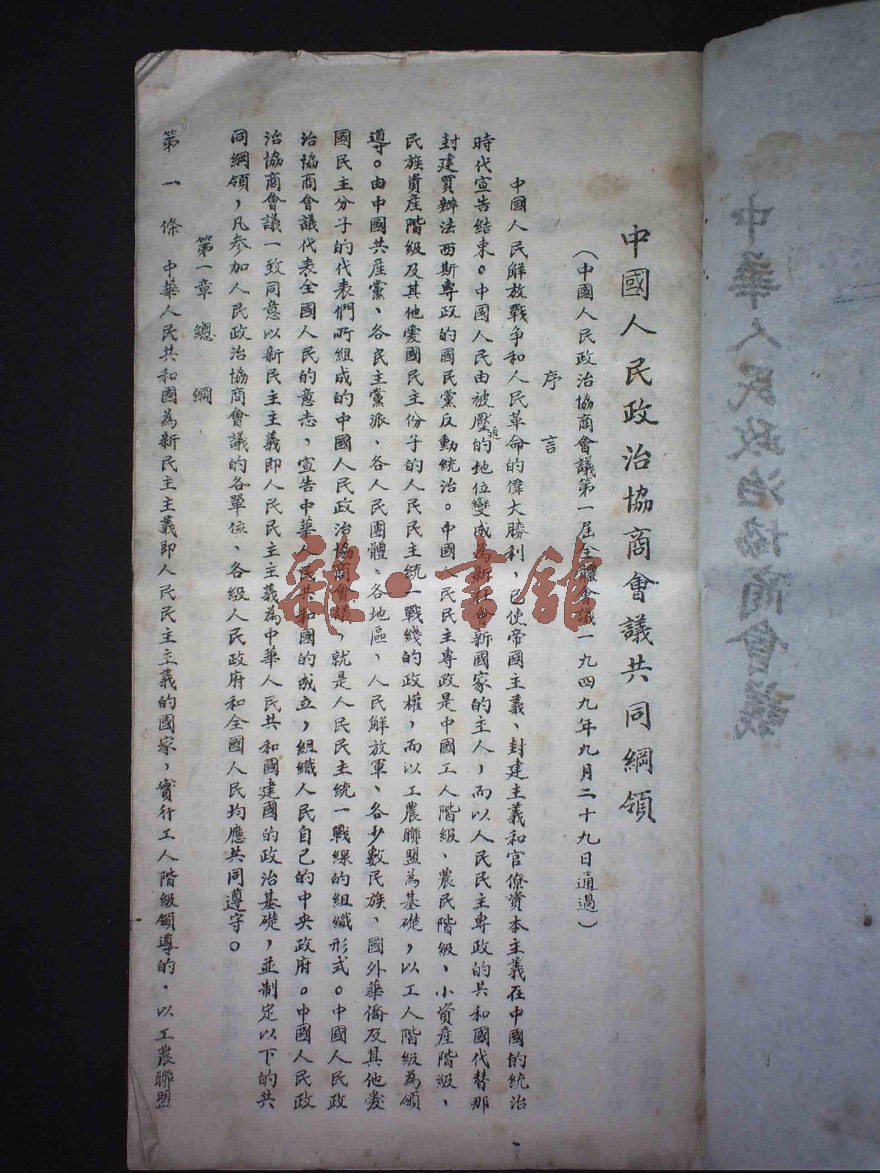 中國人民政治協商會議共同綱領
（中國人民政治協商會議第一屆全體會議一九四九年九月二十九日通過）
序言
中國人民解放戰爭和人民革命的偉大勝利，已使帝國主義、封建主義和官僚資本主義在中國的統治
時代宣告結束。中國人民由被壓迫的地位變成為新社會新國家的主人，而以人民民主專政的共和國代替那
封建買辦法西斯專政的國民黨反動統治。中國人民民主專政是中國工人階級、農民階級、小資產階級、
民族資產階級及其他愛國民主份子的人民民主統一戰綫的政權，而以工農聯盟為基礎，以工人階級為領
導。由中國共產黨、各民主黨派、各人民團體、各地區、人民解放軍、各少數民族、國外華僑及其他愛
國民主分子的代表們所組成的中國人民政治協商會議，就是人民民主統一戰線的組織形式。中國人民政
治協商會議代表全國人民的意志，宣告中華人民共和國的成立，組織人民自己的中央政府。中國人民政
治協商會議一致同意以新民主主義即人民民主主義為中華人民共和國建國的政治基礎，並制定以下的共
同綱領，凡參加人民政治協商會議的各單位、各級人民政府和全國人民均應共同遵守。
第一章 總綱
第一條 中華人民共和國為新民主主義即人民民主主義的國家，實行工人階級領導的，以工農聯盟
中華人民政治協商會議
雜·書館